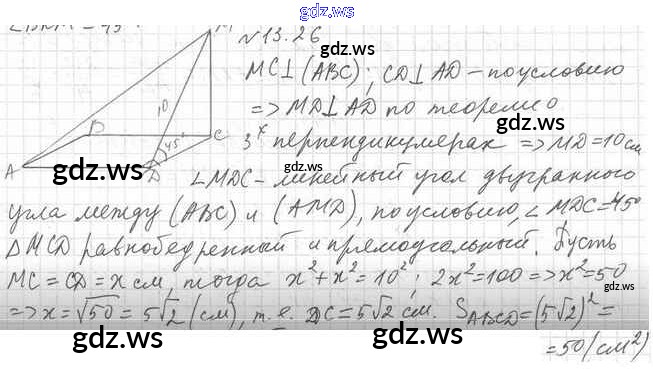 gdz.ws
M
N 13.26
gdz.ws
MC⊥(ABC); CD⊥AD – по условию
=> MD⊥AD по теореме о
3х перпендикулярах => MD = 10 см
10
B
C
45°
A
D
gdz.ws
gdz.ws
∠MDC – линейный угол двугранного
угла между (ABC) и (AMD), по условию, ∠MDC = 45°
gdz.ws
gdz.ws
ΔMCD равнобедренный и прямоугольный. Пусть
MC = CD = x см, тогда x² + x² = 10²; 2x² = 100 => x² = 50
=> x = √50 = 5√2 (см), т.е. DC = 5√2 см. S ABCD = (5√2)² =
= 50 (см²)
gdz.ws
gdz.ws
gdz.ws